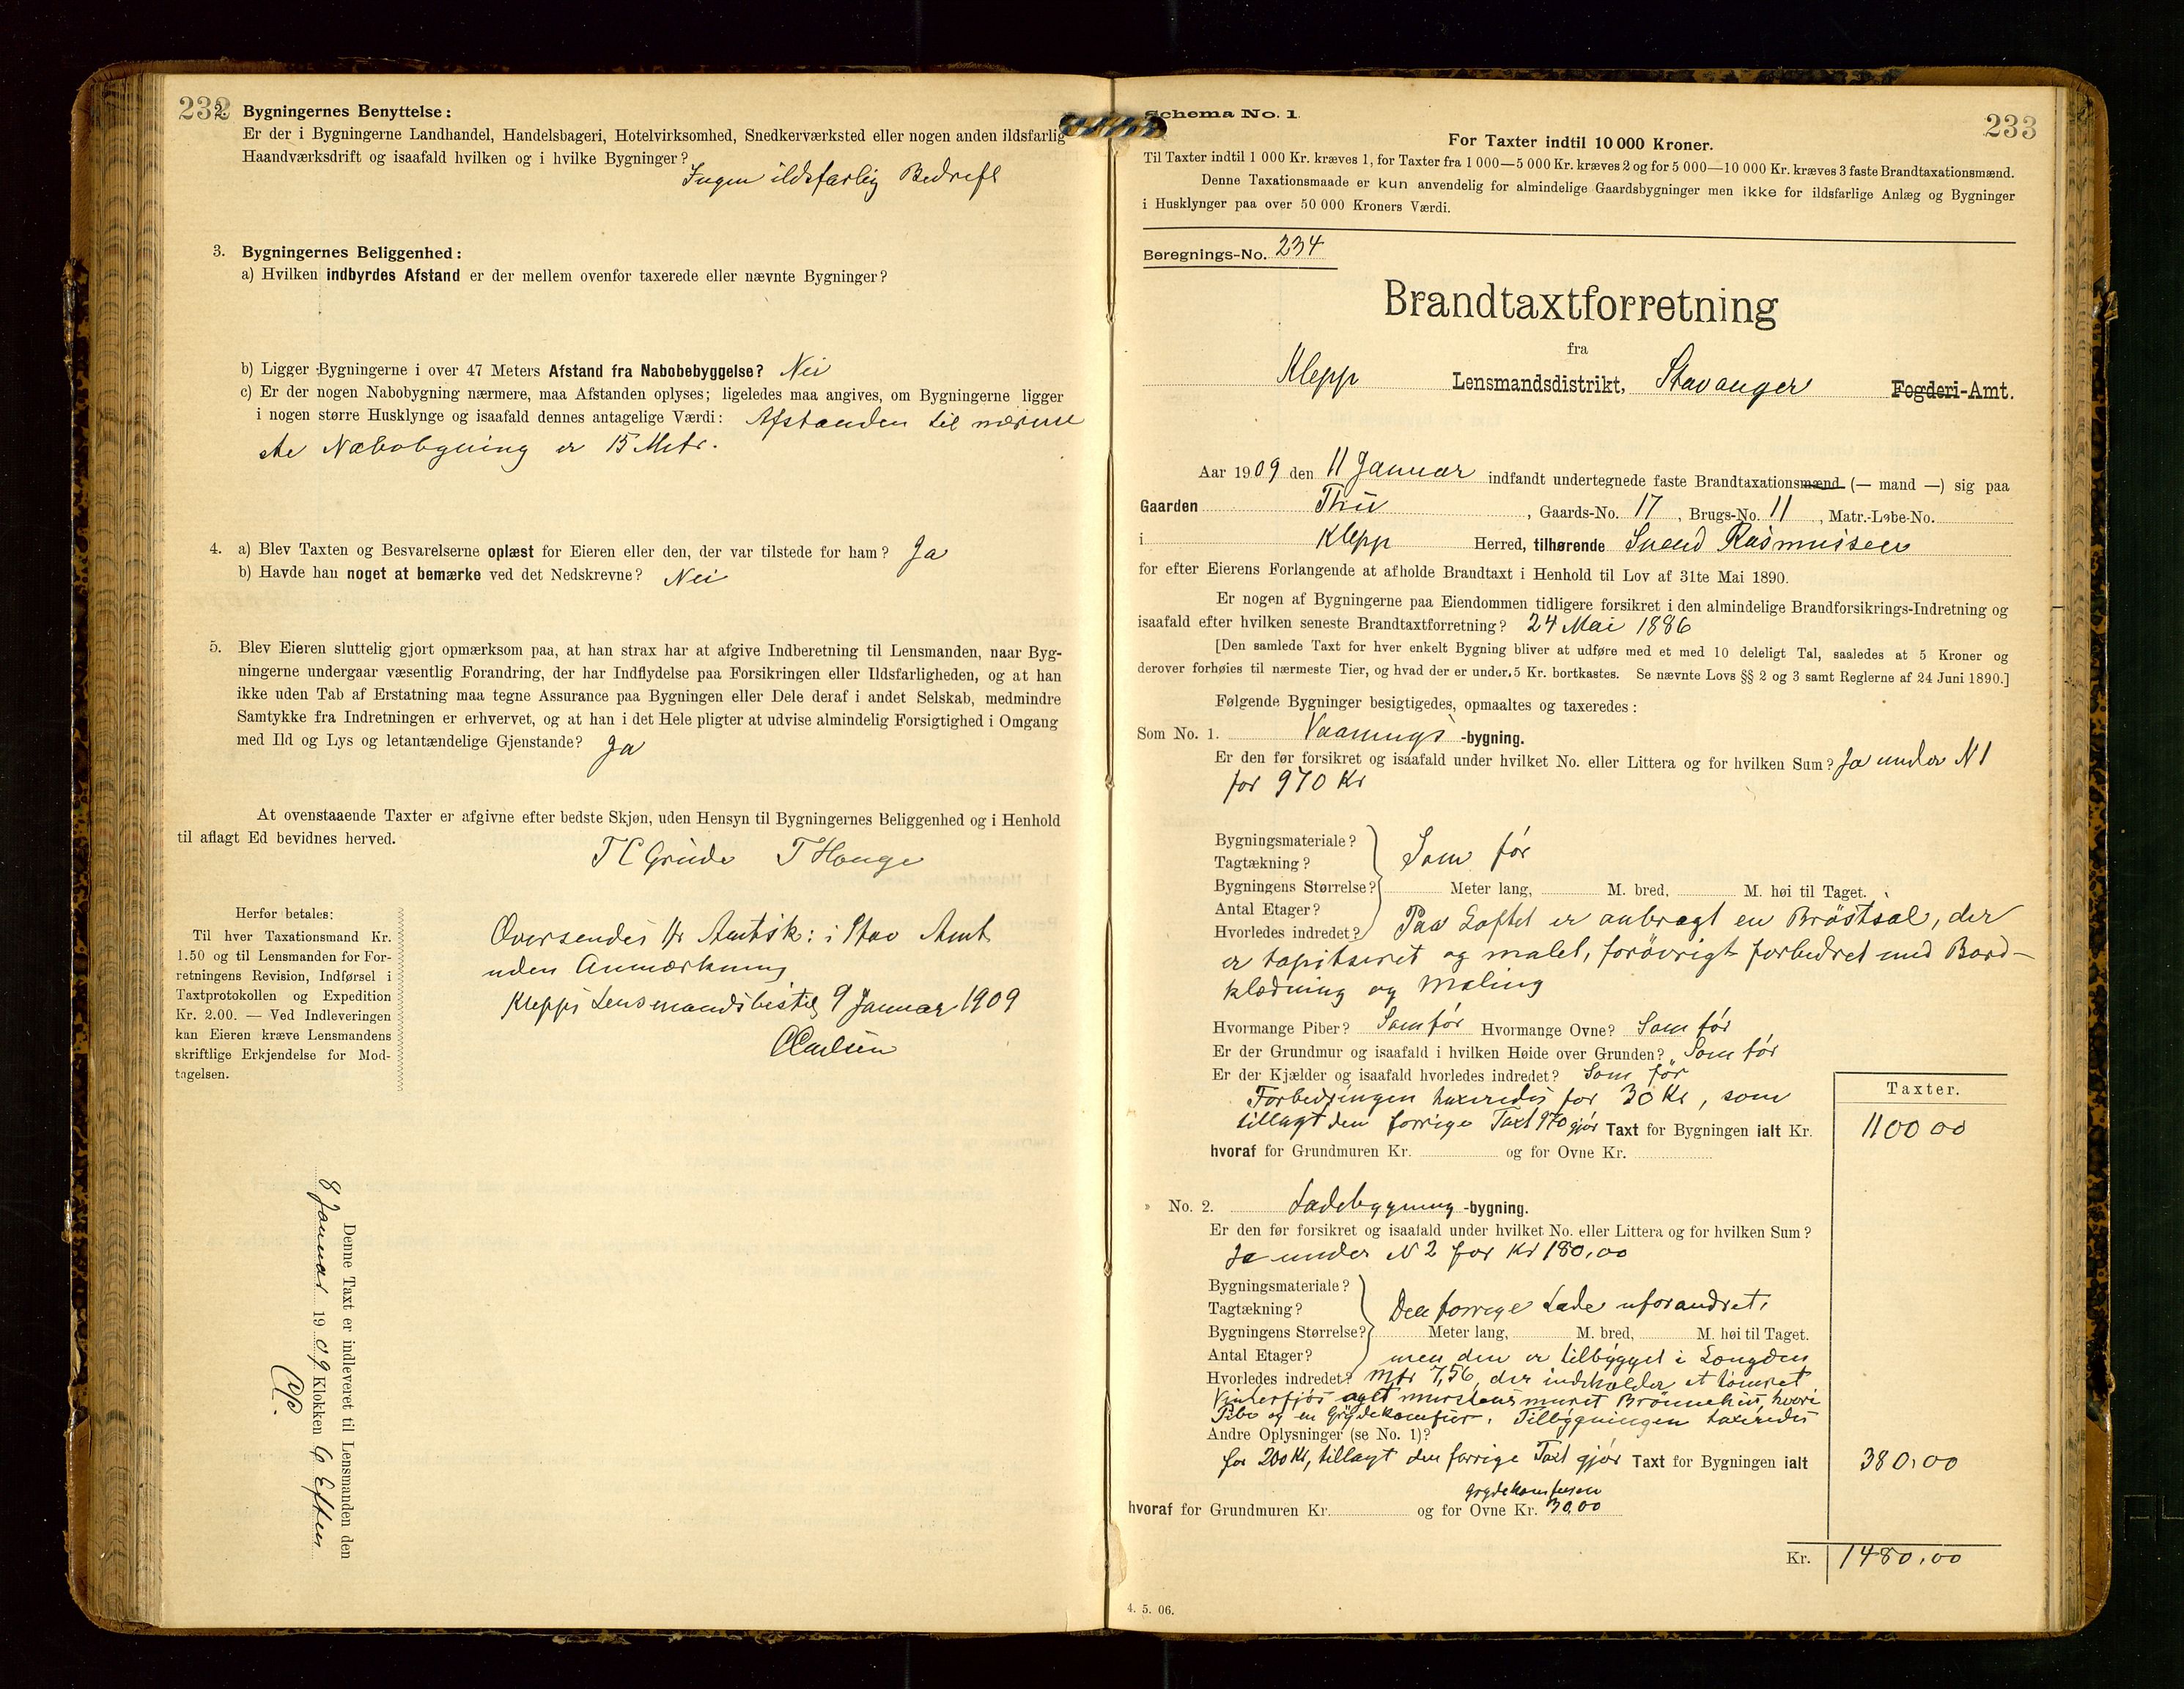 232
2. Bygningernes Benyttelse:
Er der i Bygningerne Landhandel, Handelsbageri, Hotelvirksomhed, Snedkerværksted eller nogen anden ildsfarlig
Haandværksdrift og isaafald hvilken og i hvilke Bygninger?
Ingen ildsfarlig Bedrift
3. Bygningernes Beliggenhed:
a) Hvilken indbyrdes Afstand er der mellem ovenfor taxerede eller nævnte Bygninger?
b) Ligger Bygningerne i over 47 Meters Afstand fra Nabobebyggelse? Nei
c) Er der nogen Nabobygning nærmere, maa Afstanden oplyses; ligeledes maa angives, om Bygningerne ligger
i nogen større Husklynge og isaafald dennes antagelige Værdi: Afstanden til nærme
ste Nabobygning er 15 Metr.
4. a) Blev Taxten og Besvarelserne oplæst for Eieren eller den, der var tilstede for ham? Ja
b) Havde han noget at bemærke ved det Nedskrevne? Nei
5. Blev Eieren sluttelig gjort opmærksom paa, at han strax har at afgive Indberetning til Lensmanden, naar Byg-
ningerne undergaar væsentlig Forandring, der har Indflydelse paa Forsikringen eller Ildsfarligheden, og at han
ikke uden Tab af Erstatning maa tegne Assurance paa Bygningen eller Dele deraf i andet Selskab, medmindre
Samtykke fra Indretningen er erhvervet, og at han i det Hele pligter at udvise almindelig Forsigtighed i Omgang
med Ild og Lys og letantændelige Gjenstande? Ja
At ovenstaaende Taxter er afgivne efter bedste Skjøn, uden Hensyn til Bygningernes Beliggenhed og i Henhold
til aflagt Ed bevidnes herved.
T C Grude T Hauge
Herfor betales:
Til hver Taxationsmand Kr.
1.50 og til Lensmanden for For-
retningens Revision, Indførsel i
Taxtprotokollen og Expedition
Kr. 2.00. — Ved Indleveringen
kan Eieren kræve Lensmandens
skriftlige Erkjendelse for Mod-
tagelsen.
Oversendes Hr Amtsk: i Stav Amt
uden Anmærkning
Klepps Lensmandsbestil 9 Januar 1909
Denne Taxt er indleveret til Lensmanden den
8 Januar 1909 Klokken 6 Efterm
Schema No. 1
233
For Taxter indtil 10 000 Kroner.
Til Taxter indtil 1 000 Kr. kræves 1, for Taxter fra 1 000—5 000 Kr. kræves 2 og for 5 000—10 000 Kr. kræves 3 faste Brandtaxationsmænd.
Denne Taxationsmaade er kun anvendelig for almindelige Gaardsbygninger men ikke for ildsfarlige Anlæg og Bygninger
i Husklynger paa over 50 000 Kroners Værdi.
Beregnings-No. 234
Brandtaxtforretning
fra
Klepp Lensmandsdistrikt, Stavanger Fogderi-Amt.
Aar 1909 den 11 Januar indfandt undertegnede faste Brandtaxationsmænd (— mand —) sig paa
Gaarden Thu, Gaards-No. 17, Brugs-No. 11, Matr.-Løbe-No.
i Klepp Herred, tilhørende Svend Rasmussen
for efter Eierens Forlangende at afholde Brandtaxt i Henhold til Lov af 31te Mai 1890.
Er nogen af Bygningerne paa Eiendommen tidligere forsikret i den almindelige Brandforsikrings-Indretning og
isaafald efter hvilken seneste Brandtaxtforretning? 24 Mai 1886
[Den samlede Taxt for hver enkelt Bygning bliver at udføre med et med 10 deleligt Tal, saaledes at 5 Kroner og
derover forhøies til nærmeste Tier, og hvad der er under 5 Kr. bortkastes. Se nævnte Lovs §§ 2 og 3 samt Reglerne af 24 Juni 1890.]
Følgende Bygninger besigtigedes, opmaaltes og taxeredes:
Som No. 1. Vaanings -bygning.
Er den før forsikret og isaafald under hvilket No. eller Littera og for hvilken Sum? Ja under N 1
for 970 Kr
Bygningsmateriale?
Tagtækning? Som før
Bygningens Størrelse? Meter lang, M. bred, M. høi til Taget.
Antal Etager?
Hvorledes indredet? Paa Loftet er anbragt en Bröstsal, der
er tapitseret og malet, forövrigt forbedret med Bord-
klædning og Maling
Hvormange Piber? Som før Hvormange Ovne? Som før
Er der Grundmur og isaafald i hvilken Høide over Grunden? Som før
Er der Kjælder og isaafald hvorledes indredet? Som før
Taxter.
Forbedringen taxeredes for 30 Kr, som
tillagt den forrige Taxt 970 gjør Taxt for Bygningen ialt Kr. 1100 00
hvoraf for Grundmuren Kr. og for Ovne Kr.
» No. 2. Ladebygning -bygning.
Er den før forsikret og isaafald under hvilket No. eller Littera og for hvilken Sum?
Ja under N 2 for Kr 180,00
Bygningsmateriale?
Tagtækning? Den forrige Lade uforandret,
Bygningens Størrelse? Meter lang, M. bred, M. høi til Taget.
Antal Etager? men den er tilbygget i Længden
Hvorledes indredet? Mtr 7,56, der indeholder et tömret
Vinterfjös og et murstens muret Brönnehus, hvori
Pibe og en Grydekomfur. Tilbygningen taxeredes
Andre Oplysninger (se No. 1)?
for 200 Kr, tillagt den forrige Taxt gjør Taxt for Bygningen ialt 380,00
Grydekomfuren
hvoraf for Grundmuren Kr. og for Ovne Kr. 30,00
Kr. 1480,00
4. 5. 06.